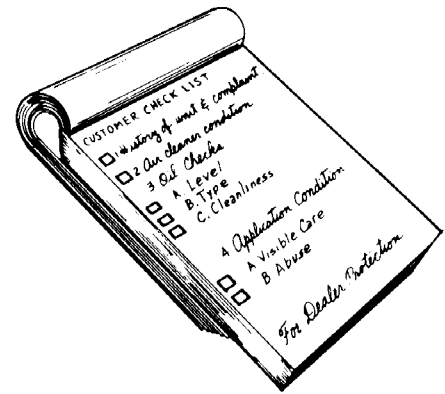 CUSTOMER CHECK LIST
1 History of unit & complaint
2 Air cleaner condition
3 Oil Checks
A. Level
B. Type
C. Cleanliness
4 Application Condition
A Visible Care
B Abuse
For Dealer Protection